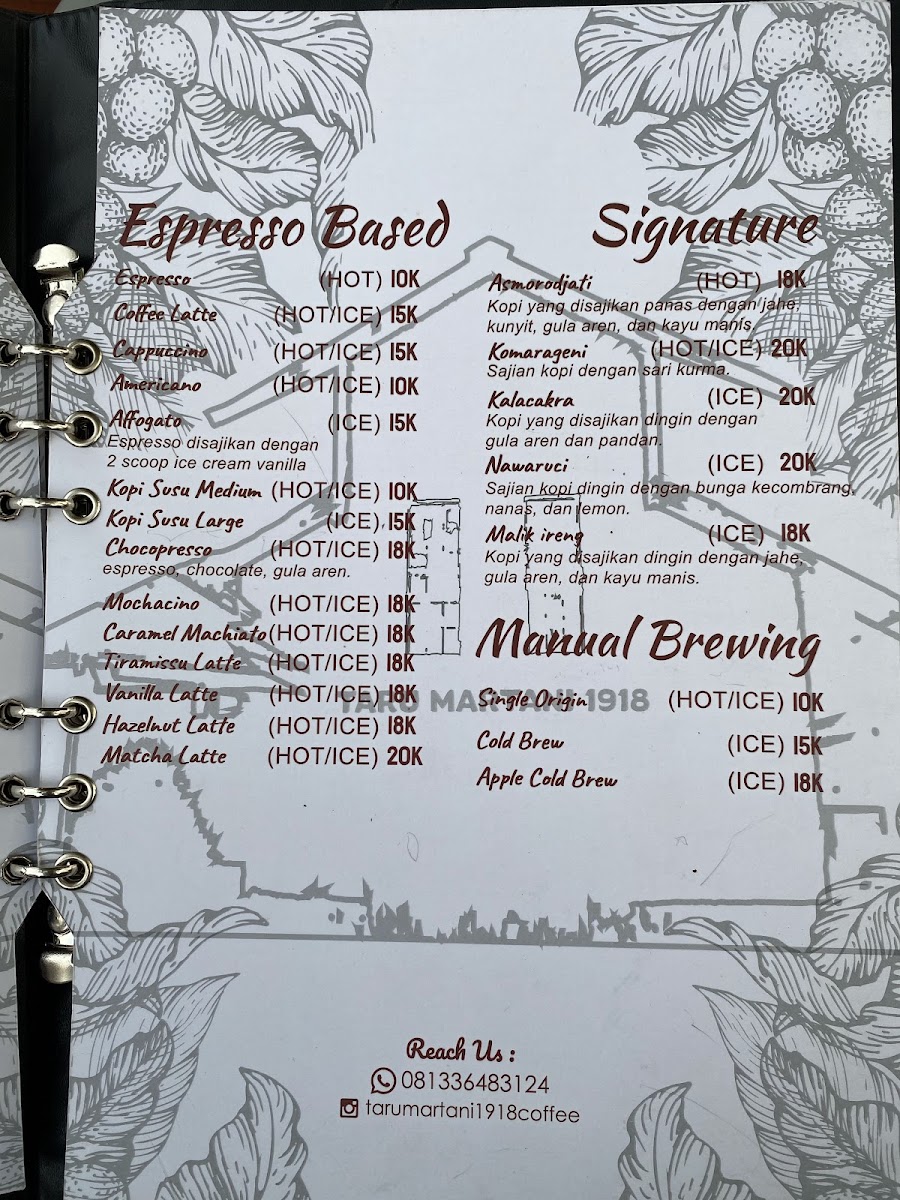 Espresso Based
Espresso (HOT) 10K
Coffee Latte (HOT/ICE) 15K
Cappuccino (HOT/ICE) 15K
Americano (HOT/ICE) 10K
Affogato (ICE) 15K
Espresso disajikan dengan
2 scoop ice cream vanilla
Kopi Susu Medium (HOT/ICE) 10K
Kopi Susu Large (ICE) 15K
Chocopresso (HOT/ICE) 18K
espresso, chocolate, gula aren.
Mochacino (HOT/ICE) 18K
Caramel Machiato (HOT/ICE) 18K
Tiramissu Latte (HOT/ICE) 18K
Vanilla Latte (HOT/ICE) 18K
Hazelnut Latte (HOT/ICE) 18K
Matcha Latte (HOT/ICE) 20K
Signature
Asmorodjati (HOT) 18K
Kopi yang disajikan panas dengan jahe,
kunyit, gula aren, dan kayu manis.
Komarageni (HOT/ICE) 20K
Sajian kopi dengan sari kurma.
Kalacakra (ICE) 20K
Kopi yang disajikan dingin dengan
gula aren dan pandan.
Nawaruci (ICE) 20K
Sajian kopi dingin dengan bunga kecombrang,
nanas, dan lemon.
Malik ireng (ICE) 18K
Kopi yang disajikan dingin dengan jahe,
gula aren, dan kayu manis.
Manual Brewing
Single Origin (HOT/ICE) 10K
Cold Brew (ICE) 15K
Apple Cold Brew (ICE) 18K
TARU MARTANI 1918
Reach Us :
081336483124
tarumartani1918coffee